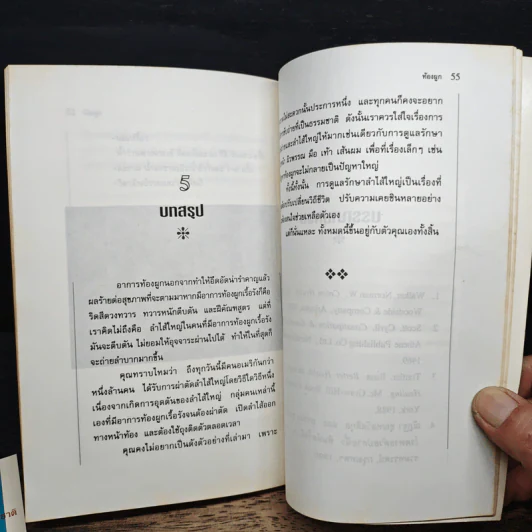 5
บทสรุป
อาการท้องผูกนอกจากทำให้อึดอัดน่ารำคาญแล้ว
ผลร้ายต่อสุขภาพที่จะตามมาหากมีอาการท้องผูกเรื้อรังก็คือ
ริดสีดวงทวาร ทวารหนักตีบตัน และฝีคัณฑสูตร แต่ที่
เราคิดไม่ถึงคือ ลำไส้ใหญ่ในคนที่มีอาการท้องผูกเรื้อรัง
มันจะตีบตัน ไม่ยอมให้อุจจาระผ่านไปได้ ทำให้ในที่สุดก็
จะถ่ายลำบากมากขึ้น
คุณทราบไหมว่า ถึงทุกวันนี้มีคนอเมริกันกว่า
หนึ่งล้านคน ได้รับการผ่าตัดลำไส้ใหญ่โดยวิธีใดวิธีหนึ่ง
เนื่องจากเกิดการอุดตันของลำไส้ใหญ่ กลุ่มคนเหล่านี้
เองที่มีอาการท้องผูกเรื้อรังจนต้องผ่าตัด เปิดลำไส้ออก
ทางหน้าท้อง และต้องใช้ถุงติดตัวตลอดเวลา
คุณคงไม่อยากเป็นดังตัวอย่างที่เล่ามา เพราะ
ท้องผูก 55
ประการหนึ่ง และทุกคนก็คงจะอยาก
ที่เป็นธรรมชาติ ดังนั้นเราควรใส่ใจเรื่องการ
และลำไส้ใหญ่ให้มากเช่นเดียวกับการดูแลรักษา
ผิวพรรณ มือ เท้า เส้นผม เพื่อที่เรื่องเล็กๆ เช่น
จะไม่กลายเป็นปัญหาใหญ่
ทั้งนี้ทั้งนั้น การดูแลรักษาลำไส้ใหญ่เป็นเรื่องที่
ปรับเปลี่ยนวิถีชีวิต ปรับความเคยชินหลายอย่าง
ช่วยเหลือตัวเอง
แต่ก็นั่นแหละ ทั้งหมดนี้ขึ้นอยู่กับตัวคุณเองทั้งสิ้น